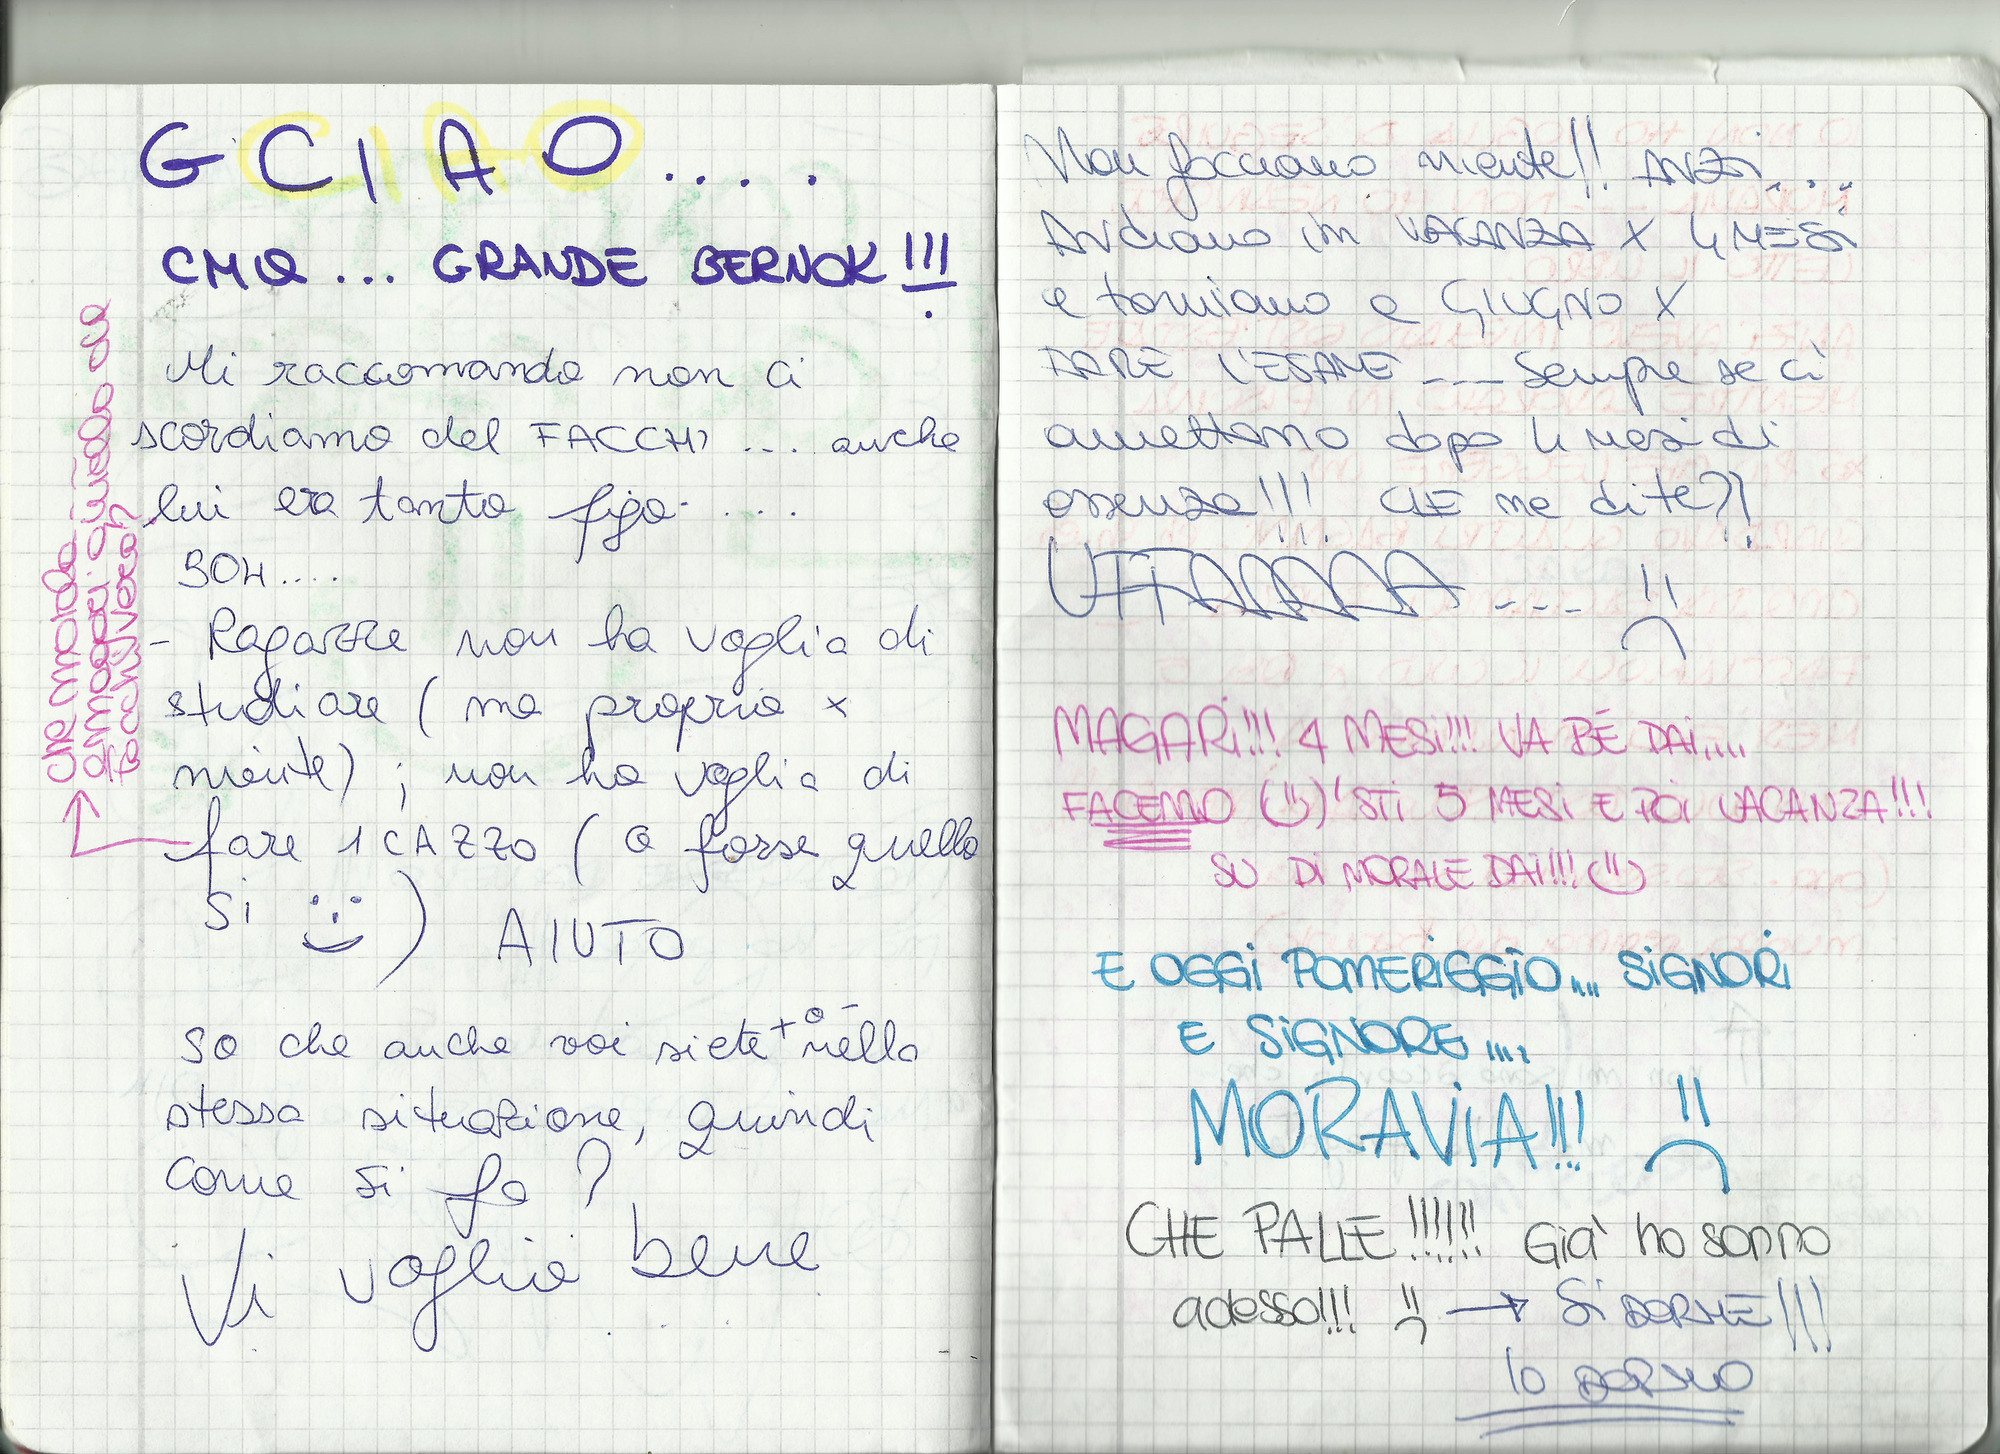 G CIAO....
CMQ... GRANDE BERNOK!!!
Mi raccomando non ci
scordiamo del FACCHI ... anche
lui era tanto figo....
BOH....
- Ragazze non ho voglia di
studiare (ma proprio x
niente) ; non ho voglia di
fare 1 CAZZO ( o forse quello
si ) AIUTO
so che anche voi siete + o - nella
stessa situazione, quindi
come si fa ?
Vi voglio bene
che
quello da
Non facciamo niente!! ANZI....
ANdiamo in VACANZA X 4 MESI
e torniamo a GIUGNO X
DARE L'ESAME ---- Sempre se ci
amettono dopo 4 mesi di
assenza!!! CHE ne dite?!
UFFAAAAA ---
MAGARI!!! 4 MESI!!! VA BÉ DAI....
FACEMO (!!) 'STI 5 MESI E POI VACANZA!!!
SU DI MORALE DAI!!!
E OGGI POMERIGGIO.... SIGNORI
E SIGNORE ....
MORAVIA!!!
CHE PALLE !!!!!! Già ho sonno
adesso!!! → Si DORME!!!
Io DORMO